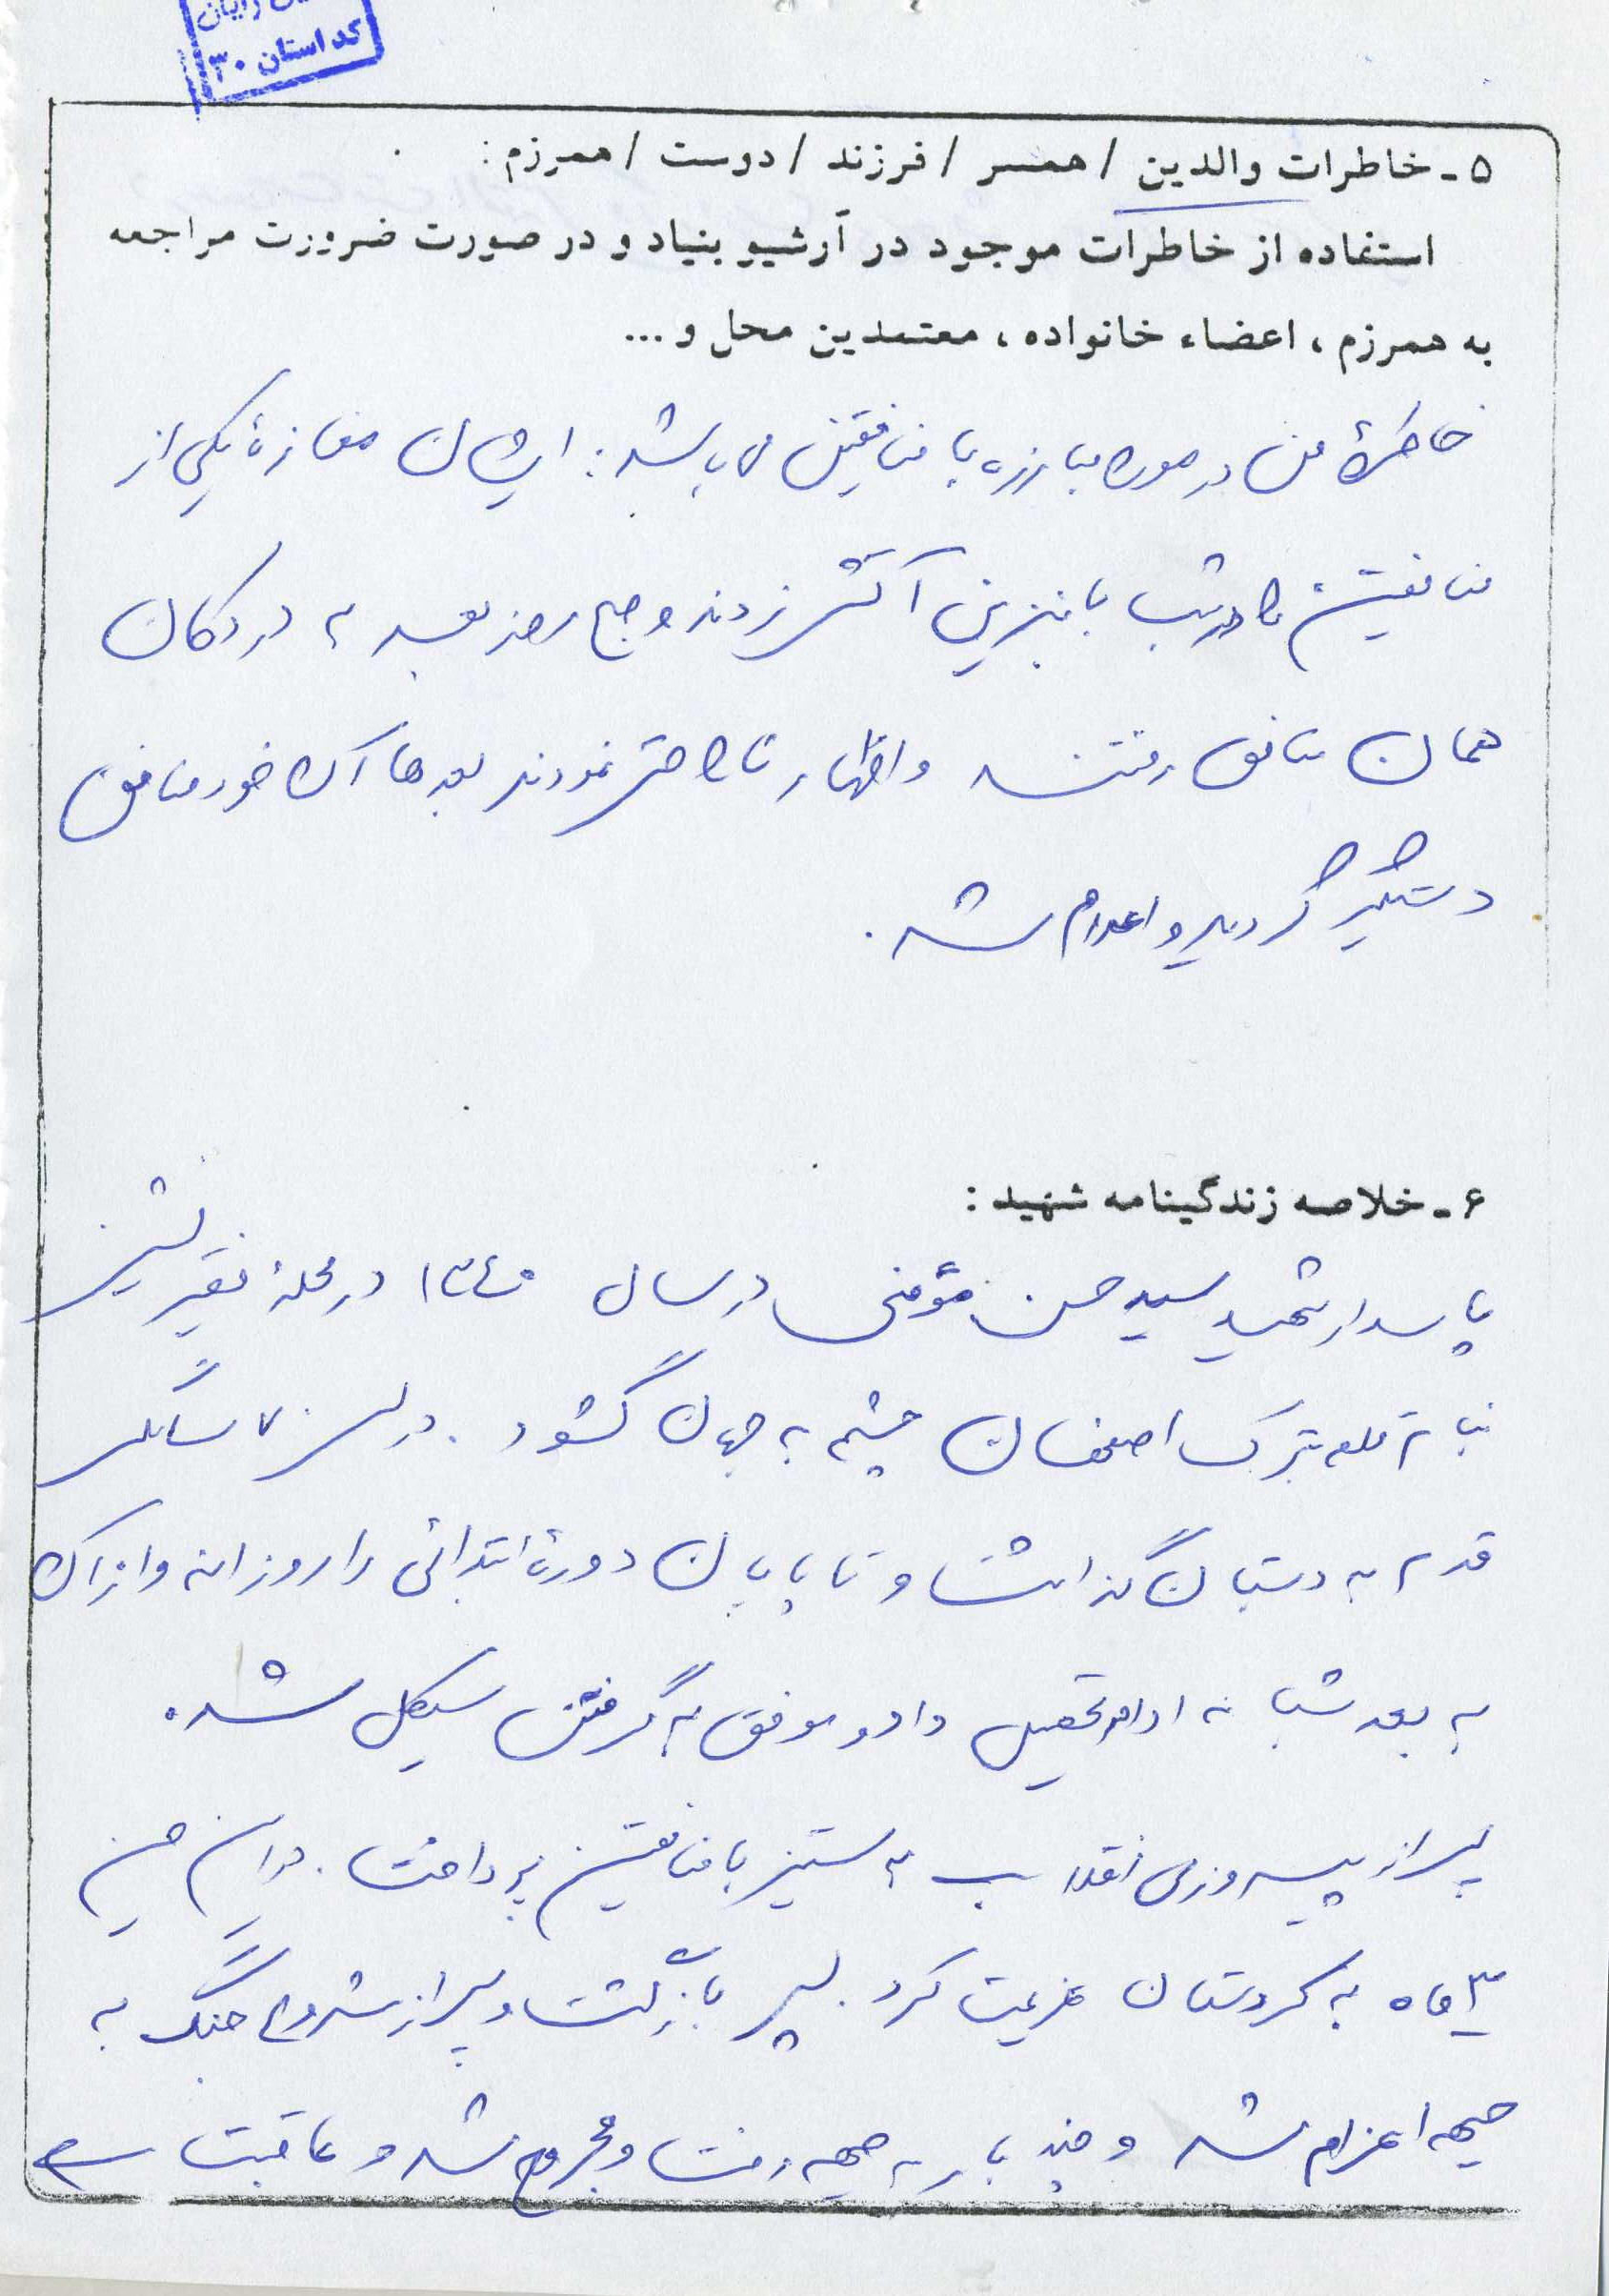 رایان
کد استان ۳۰
۵ - خاطرات والدین / همسر / فرزند / دوست / همرزم :
استفاده از خاطرات موجود در آرشیو بنیاد و در صورت ضرورت مراجعه
به همرزم ، اعضاء خانواده ، معتمدین محل و ...
خاطرهٔ من در مورد مبارزه با منافقین می باشد : ایشان مغازهٔ یکی از
منافقین را در شب با بنزین آتش زدند و صبح روز بعد به در دکان
همان منافق رفتند و اظهار ناراحتی نمودند بعدها آن خود منافق
دستگیر گردید و اعدام شد .
۶ - خلاصه زندگینامه شهید :
پاسدار شهید سید حسن مؤمنی در سال ۱۳۴۰ در محلهٔ فقیر نشین
قلعه تبرک اصفهان چشم به جهان گشود . در سن ۷ سالگی
قدم به دبستان گذاشت و تا پایان دورهٔ ابتدائی را روزانه و از آن
به بعد شبانه ادامه تحصیل داد و موفق به گرفتن سیکل شد .
پس از پیروزی انقلاب به ستیز با منافقین پرداخت . در این حین
۳ ماه به کردستان عزیمت کرد . پس بازگشت و پس از شروع جنگ به
جبهه اعزام شد و چند بار به جبهه رفت و مجروح شد و عاقبت